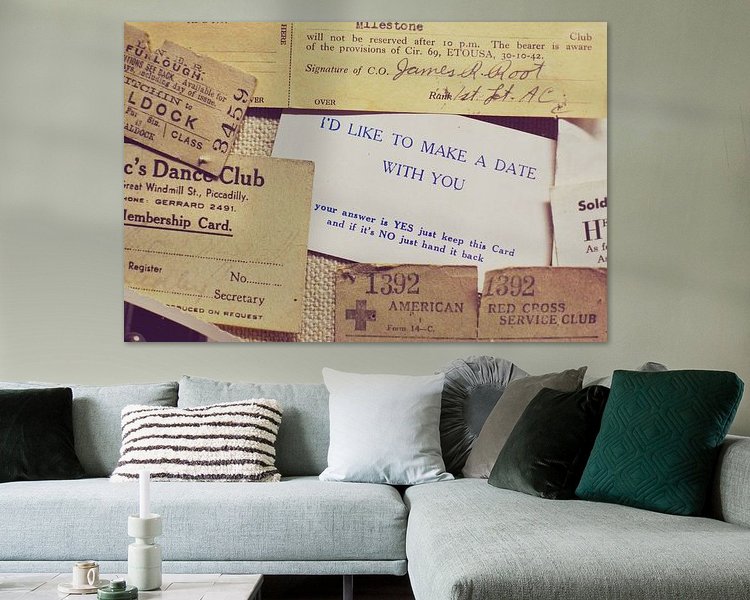 HERE
VER
OVER
Milestone
Club
will not be reserved after 10 p.m. The bearer is aware
of the provisions of Cir. 69, ETOUSA, 30-10-42.
Signature of C.O. James R. Groot
Rank 1st. Lt. A.C.
FURLOUGH.
Available for
days, including day of issue.
HITCHIN to
LDOCK
CLASS
3459
c's Dance Club
reat Windmill St., Piccadilly.
HONE: GERRARD 2491.
Membership Card.
Register No.
Secretary
ODUCED ON REQUEST
I'D LIKE TO MAKE A DATE
WITH YOU
your answer is YES just keep this Card
and if it's NO just hand it back
Sold
H
As f
A
1392
AMERICAN
Form 14—C.
1392
RED CROSS
SERVICE CLUB